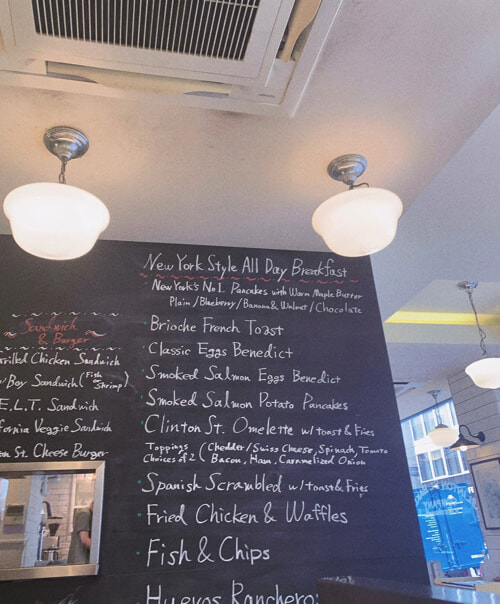 Sandwich
& Burger
rilled Chicken Sandwich
Boy Sandwich (Fish or Shrimp)
E.L.T. Sandwich
fornia Veggie Sandwich
on St. Cheese Burger
New York Style All Day Breakfast
New York's No1. Pancakes with Warm Maple Butter
Plain/Blueberry/Banana & Walnut/Chocolate
Brioche French Toast
Classic Eggs Benedict
Smoked Salmon Eggs Benedict
Smoked Salmon Potato Pancakes
Clinton St. Omelette w/toast & Fries
Toppings (Chedder/Swiss Cheese, Spinach, Tomato
Choices of 2 Bacon, Ham, Caramelized Onion
Spanish Scrambled w/toast & Fries
Fried Chicken & Waffles
Fish & Chips
Huevos Ranchero